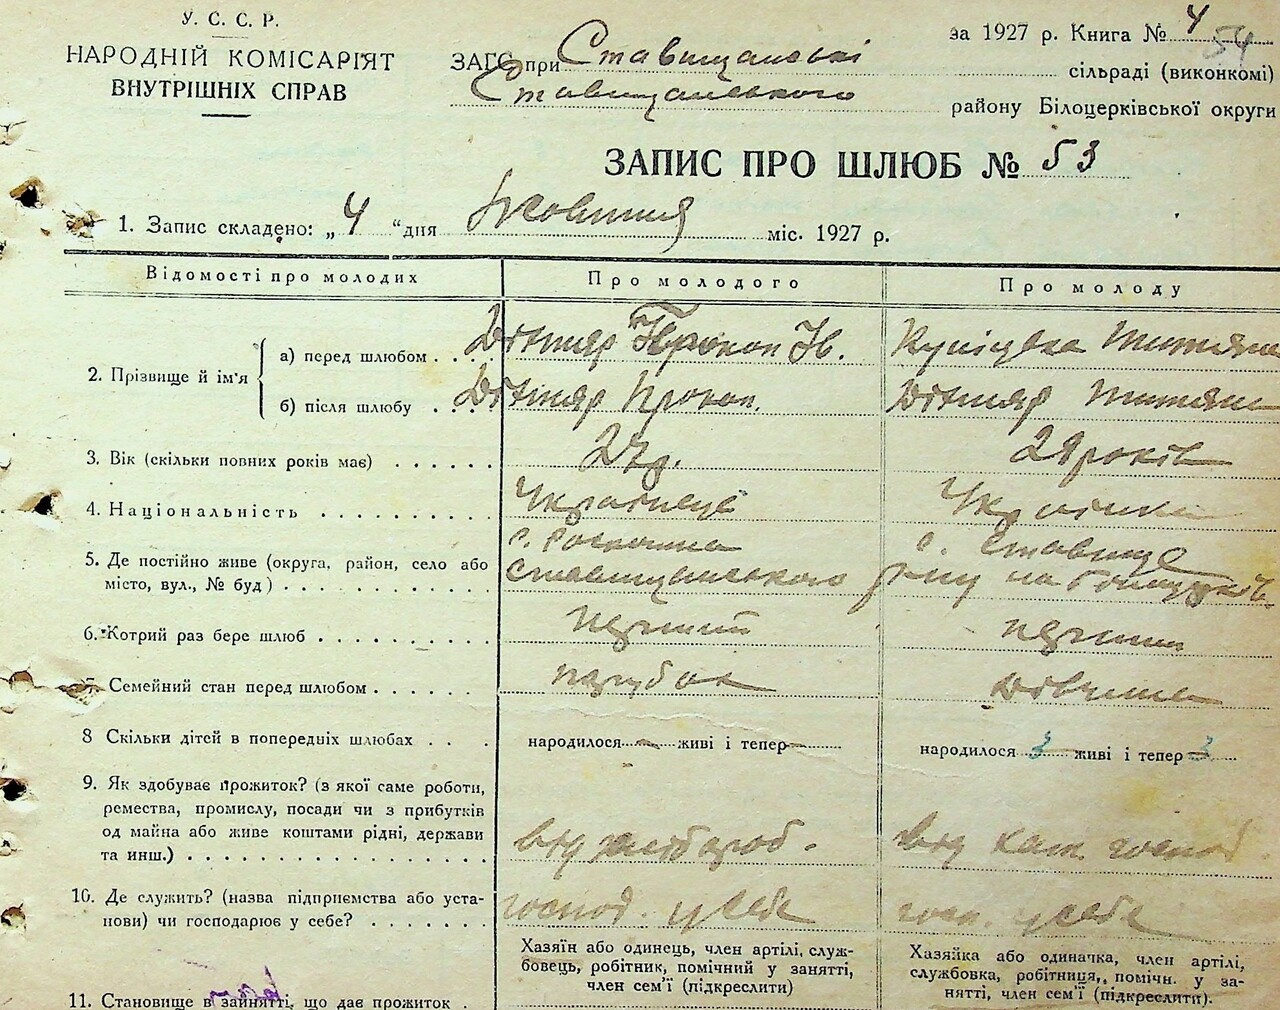 У. С. С. Р.
НАРОДНІЙ КОМІСАРІЯТ
ВНУТРІШНІХ СПРАВ
за 1927 р. Книга № 4
54
ЗАГС при Ставищанські сільраді (виконкомі)
Ставищанського району Білоцерківської округи
ЗАПИС ПРО ШЛЮБ № 53
1. Запис складено: „ 4 “ дня Жовтня міс. 1927 р.
Відомості про молодих
Про молодого
Про молоду
2. Прізвище й ім'я
а) перед шлюбом . . Дітняр Прокоп Ів. Тетяна
б) після шлюбу . . . Дітняр Прокоп. Дітняр Тетяна
3. Вік (скільки повних років має) . . . . . . 27 р. 29 років
4. Національність . . . . . . . . . . Українець Українка
5. Де постійно живе (округа, район, село або
місто, вул., № буд) . . . . . . . . . . .
с. Розкішна с. Ставище
Ставищанського р-ну на
6. Котрий раз бере шлюб . . . . . . . . . . перший перший
7. Семейний стан перед шлюбом . . . . . . . парубок дівчина
8 Скільки дітей в попередніх шлюбах . . . народилося — живі і тепер — народилося 3 живі і тепер 3
9. Як здобуває прожиток? (з якої саме роботи,
ремества, промислу, посади чи з прибутків
од майна або живе коштами рідні, держави
та инш.) . . . . . . . . . . . . . . . . . від хлібороб. від господ.
10. Де служить? (назва підприємства або уста-
нови) чи господарює у себе? . . . . . . . господ. у себе госп. у себе
11. Становище в зайнятті, що дає прожиток .
Хазяїн або одинець, член артілі, служ-
бовець, робітник, помічний у занятті,
член сем'ї (підкреслити)
Хазяйка або одиначка, член артілі,
службовка, робітниця, помічн. у за-
нятті, член сем'ї (підкреслити).